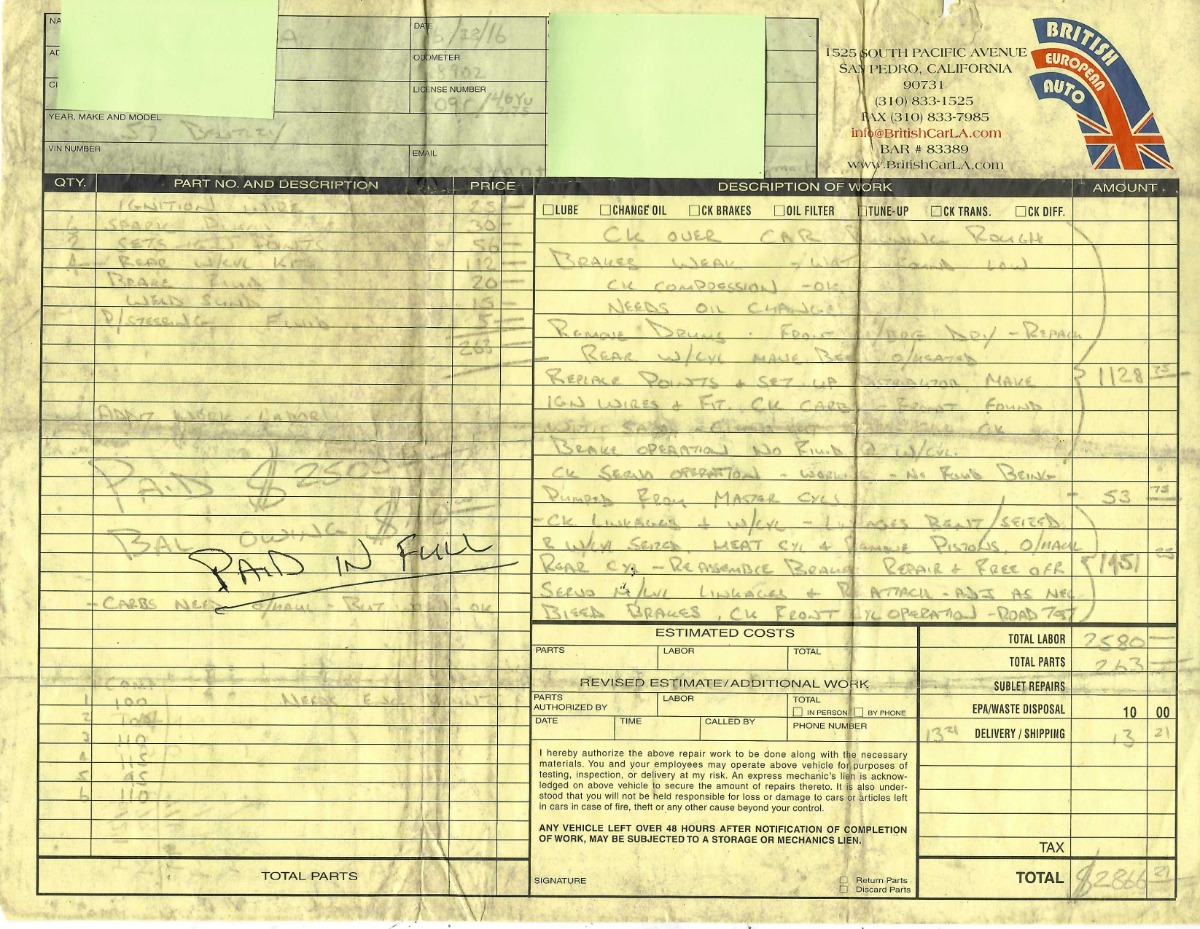 NA
DATE
/16
AD
ODOMETER
CI
LICENSE NUMBER
YEAR, MAKE AND MODEL
57 BENTLEY
VIN NUMBER
EMAIL
1525 SOUTH PACIFIC AVENUE
SAN PEDRO, CALIFORNIA
90731
(310) 833-1525
FAX (310) 833-7985
info@BritishCarLA.com
BAR # 83389
www.BritishCarLA.com
BRITISH
EUROPEAN
AUTO
QTY. PART NO. AND DESCRIPTION PRICE
IGNITION WIRE
30
2 SETS IGN POINTS 56
REAR W/CYL KITS 112
BRAKE FLUID 20
15
P/STEERING FLUID 5
263
ADDIT WORK - LABOR
PAID $2500
BAL OWING $
PAID IN FULL
- CARBS NEED O/HAUL - BUT OK
COMP
1 100
2
3 110
4 115
5 95
6 110
TOTAL PARTS
DESCRIPTION OF WORK AMOUNT
LUBE CHANGE OIL CK BRAKES OIL FILTER TUNE-UP CK TRANS. CK DIFF.
CK OVER CAR RUNNING ROUGH
BRAKES WEAK FOUND LOW
CK COMPRESSION - OK
NEEDS OIL CHANGE
REMOVE DRUMS FRONT DRY - REPACK
REAR W/CYL HAVE BEEN O/HEATED
REPLACE POINTS + SET UP DISTRIBUTOR. MAKE 1128 75
IGN WIRES + FIT. CK CARBS - FRONT FOUND
BRAKE OPERATION NO FLUID @ W/CYL.
CK SERVO OPERATION - WORKS - NO FLUID BEING
PUMPED FROM MASTER CYL 53 75
- CK LINKAGES + W/CYL - LINKAGES BENT/SEIZED
R W/CYL SEIZED. HEAT CYL + REMOVE PISTONS, O/HAUL
REAR CYL - REASSEMBLE BRAKES REPAIR + FREE OFF
SERVO M/CYL LINKAGES + RE ATTACH - ADJ AS NEC
BLEED BRAKES, CK FRONT CYL OPERATION - ROAD TEST
ESTIMATED COSTS
PARTS LABOR TOTAL
REVISED ESTIMATE/ADDITIONAL WORK
PARTS LABOR TOTAL
AUTHORIZED BY IN PERSON BY PHONE
DATE TIME CALLED BY PHONE NUMBER
I hereby authorize the above repair work to be done along with the necessary
materials. You and your employees may operate above vehicle for purposes of
testing, inspection, or delivery at my risk. An express mechanic's lien is acknow-
ledged on above vehicle to secure the amount of repairs thereto. It is also under-
stood that you will not be held responsible for loss or damage to cars or articles left
in cars in case of fire, theft or any other cause beyond your control.
ANY VEHICLE LEFT OVER 48 HOURS AFTER NOTIFICATION OF COMPLETION
OF WORK, MAY BE SUBJECTED TO A STORAGE OR MECHANICS LIEN.
SIGNATURE
Return Parts
Discard Parts
TOTAL LABOR 2580
TOTAL PARTS 263
SUBLET REPAIRS
EPA/WASTE DISPOSAL 10 00
13 21 DELIVERY / SHIPPING 13 21
TAX
TOTAL $2866 21